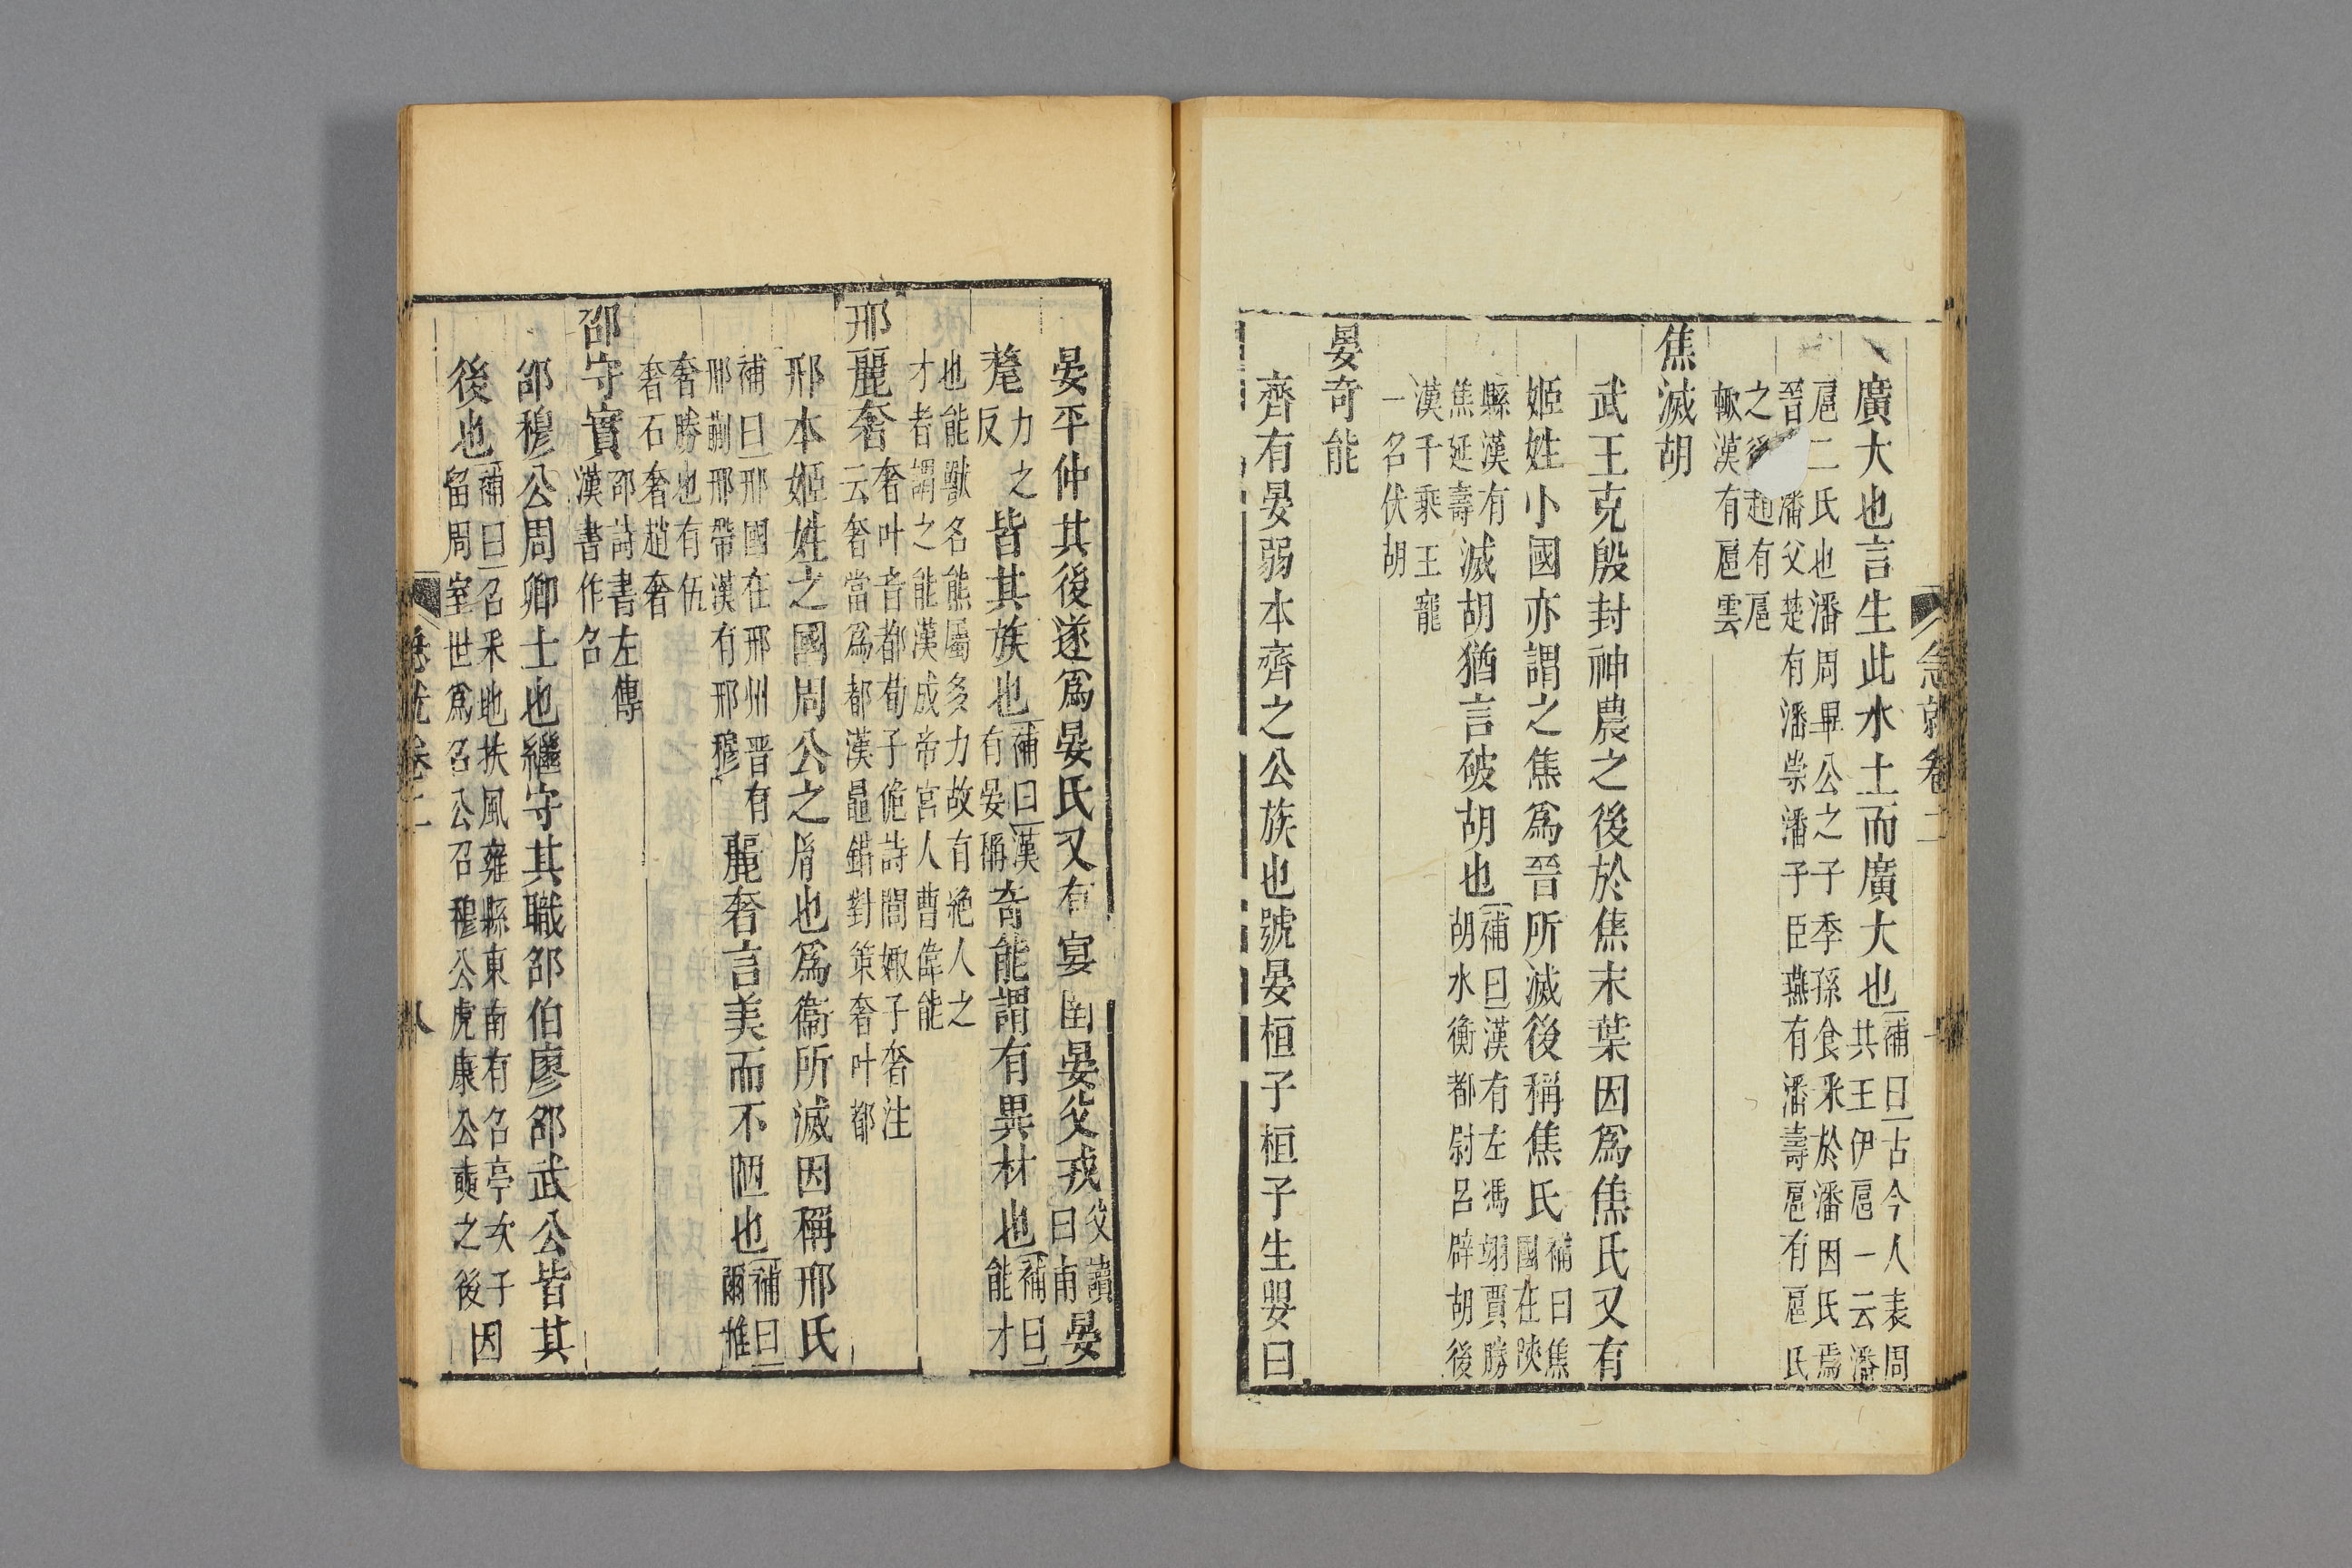 急就卷二
廣大也言生此水土而廣大也補曰古今人表周共王伊扈一云潘
扈二氏也潘周畢公之子季孫食釆於潘因氏焉
晉 潘父楚有潘崇潘子臣燕有潘壽扈有扈氏
之後趙有扈
輒漢有扈雲
焦滅胡
武王克殷封神農之後於焦末葉因爲焦氏又有
姬姓小國亦謂之焦爲晉所滅後稱焦氏補曰焦國在陝
縣漢有焦延壽滅胡猶言破胡也補曰漢有左馮翊賈勝胡水衡都尉呂辟胡後
漢千乘王寵
一名伏胡
晏奇能
齊有晏弱本齊之公族也號晏桓子桓子生嬰曰
晏平仲其後遂爲晏氏又有宴圉晏父戎父讀曰甫晏
氂力之反皆其族也補曰漢有晏稱奇能謂有異材也補曰能才
也能獸名熊屬多力故有絶人之
才者謂之能漢成帝宮人曹偉能
邢麗奢奢叶音都荀子佹詩閭娵子奢注云奢當爲都漢鼂錯對策奢叶都
邢本姬姓之國周公之胄也爲衞所滅因稱邢氏
補曰邢國在邢州晋有邢蒯邢帶漢有邢穆麗奢言美而不陋也補曰爾雅
奢勝也有伍
奢石奢趙奢
邵守實邵詩書左傳漢書作召
邵穆公周卿士也繼守其職邵伯廖邵武公皆其
後也補曰召釆地扶風雍縣東南有召亭次子因留周室世爲召公召穆公虎康公奭之後
急就卷二
八